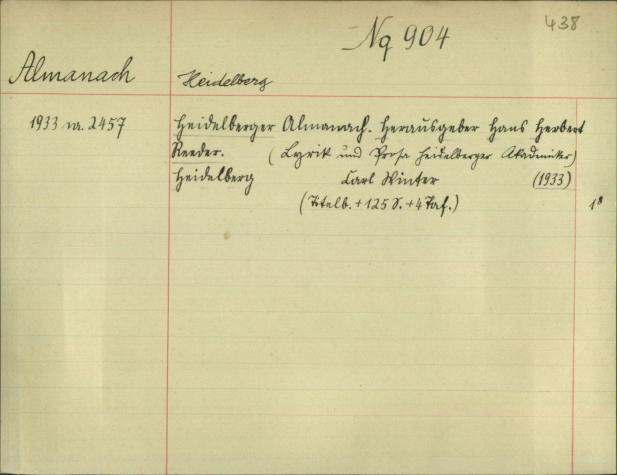 438
Nq 904
Almanach
Heidelberg
1933 nr. 2457
Heidelberger Almanach. Herausgeber Hans Herbert
Reeder. (Lyrik und Prosa Heidelberger Akademiker)
Heidelberg Carl Winter (1933)
(Titelb. + 125 S. + 4 Taf.)
1 8